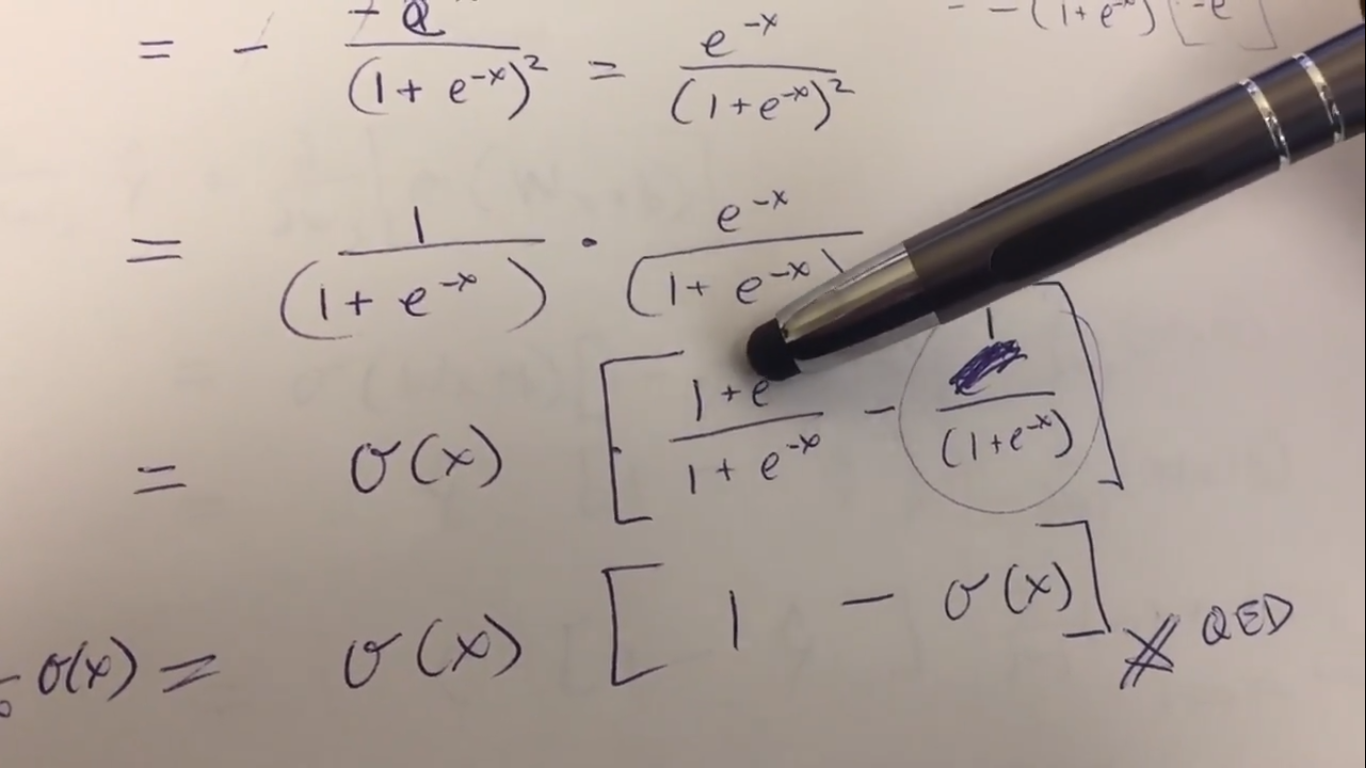 = - -e / (1 + e^-x)^2 = e^-x / (1 + e^-x)^2
- (1 + e^-x) [-e]
= 1 / (1 + e^-x) · e^-x / (1 + e^-x)
= σ(x) [ 1 + e / 1 + e^-x - 1 / (1 + e^-x) ]
σ(x) = σ(x) [ 1 - σ(x) ] QED